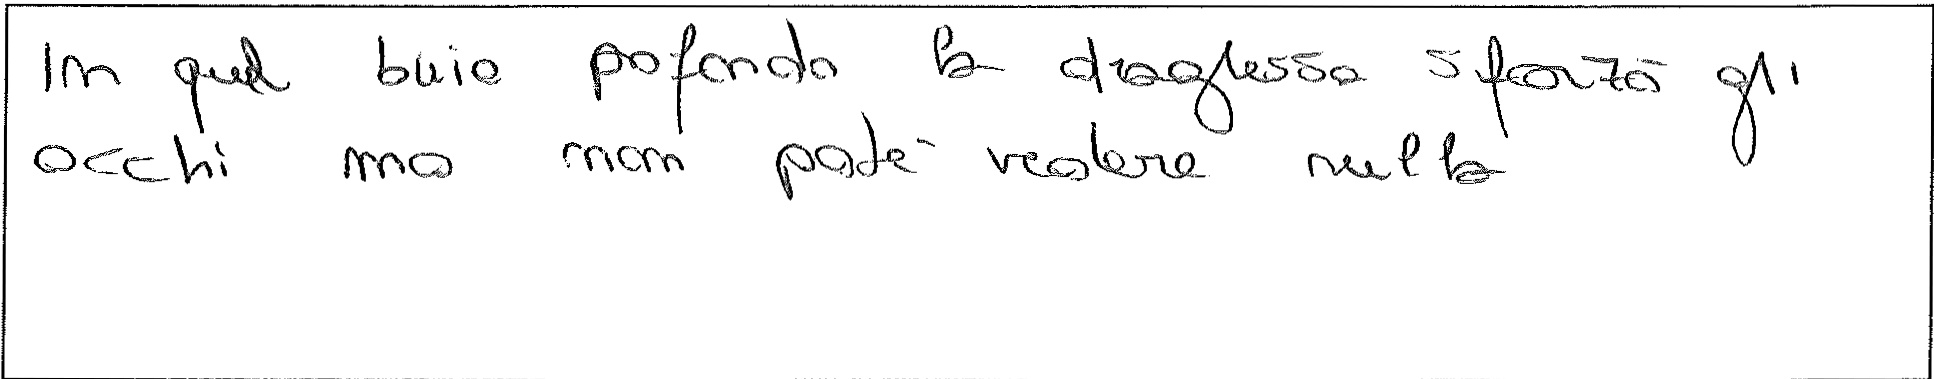 In quel buio pofondo la draghessa sforzò gli
occhi ma non poté vedere nulla